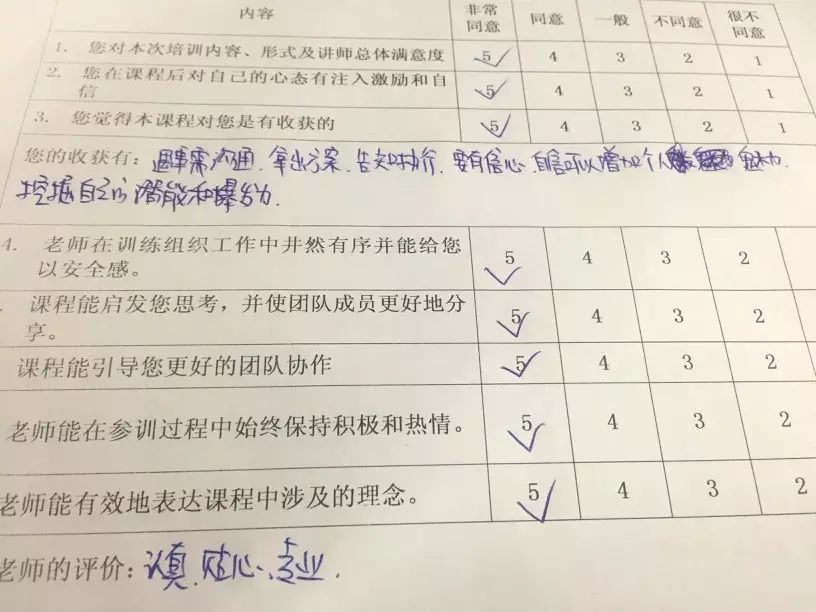 内容 非常同意 同意 一般 不同意 很不同意
1. 您对本次培训内容、形式及讲师总体满意度 5 4 3 2 1
2. 您在课程后对自己的心态有注入激励和自
信 5 4 3 2 1
3. 您觉得本课程对您是有收获的 5 4 3 2 1
您的收获有：遇事需沟通．拿出方案．告知时执行．要有信心 自信可以增加个人魅力．
挖掘自己的潜能和爆发力．
4. 老师在训练组织工作中井然有序并能给您
以安全感。 5 4 3 2
. 课程能启发您思考，并使团队成员更好地分
享。 5 4 3 2
课程能引导您更好的团队协作 5 4 3 2
老师能在参训过程中始终保持积极和热情。 5 4 3 2
老师能有效地表达课程中涉及的理念。 5 4 3 2
老师的评价：认真．贴心、专业．